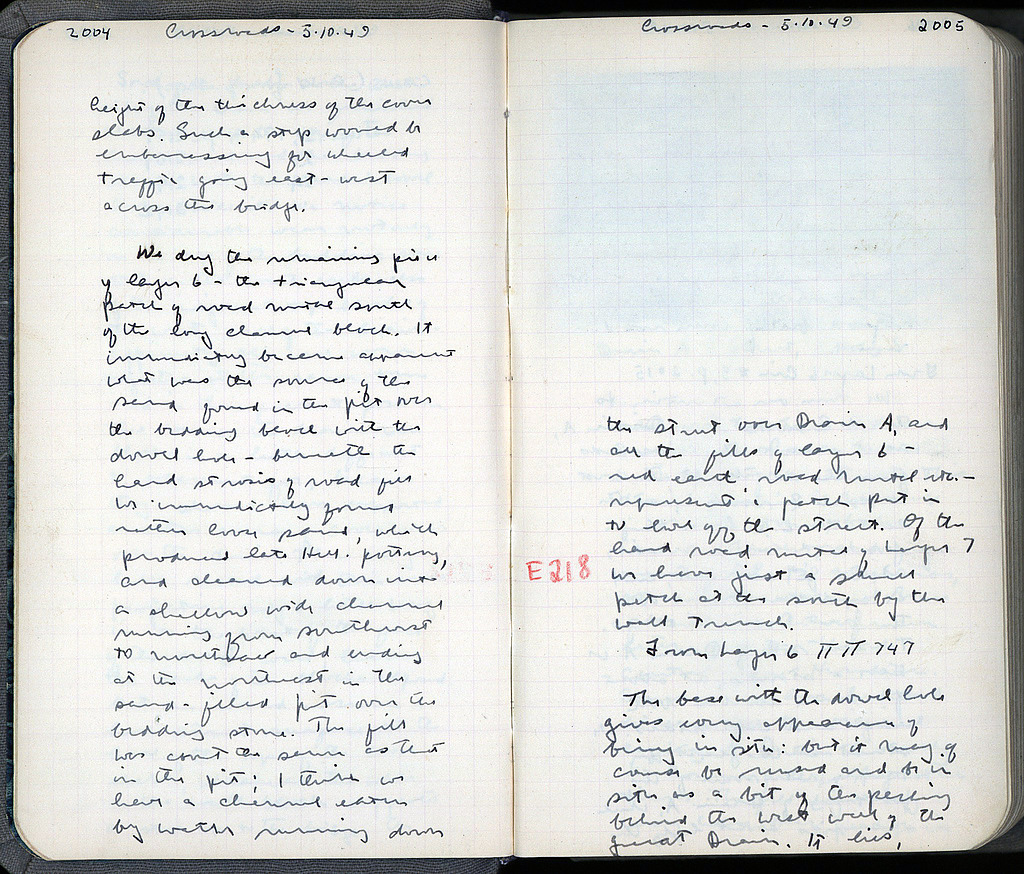 2004 Crossroads - 5.10.49
height of the thickness of the cover
slabs. Such a step would be
embarrassing for wheeled
traffic going east-west
across the bridge.
We dug the remaining piece
of layer 6 - the triangular
patch of road metal south
of the long channel block. It
immediately became apparent
what was the source of the
sand found in the pit over
the bedding block with the
dowel hole - beneath the
hard strosis of road fill
we immediately found
rather loose sand, which
produced late Hell. pottery,
and cleaned down into
a shallow wide channel
running from southwest
to northeast and ending
at the northeast in the
sand-filled pit over the
bedding stone. The fill
was about the same as that
in the pit; I think we
have a channel eaten
by water running down
Crossroads - 5.10.49 2005
the street over Drain A, and
all the fills of layer 6 -
red earth, road metal etc. -
represent a patch put in
to level off the street. Of the
hard road metal of Layer 7
we have just a small
patch at the south by the
wall trench.
From Layer 6 ΠΠ 747
The base with the dowel hole
gives every appearance of
being in situ: but it may of
course be reused and be in
situ as a bit of the packing
behind the west wall of the
great Drain. It lies,
E218